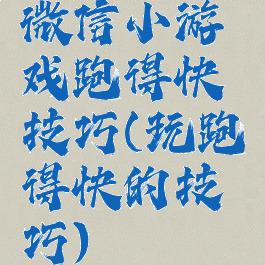 微信小游
戏跑得快
技巧(玩跑
得快的技
巧)